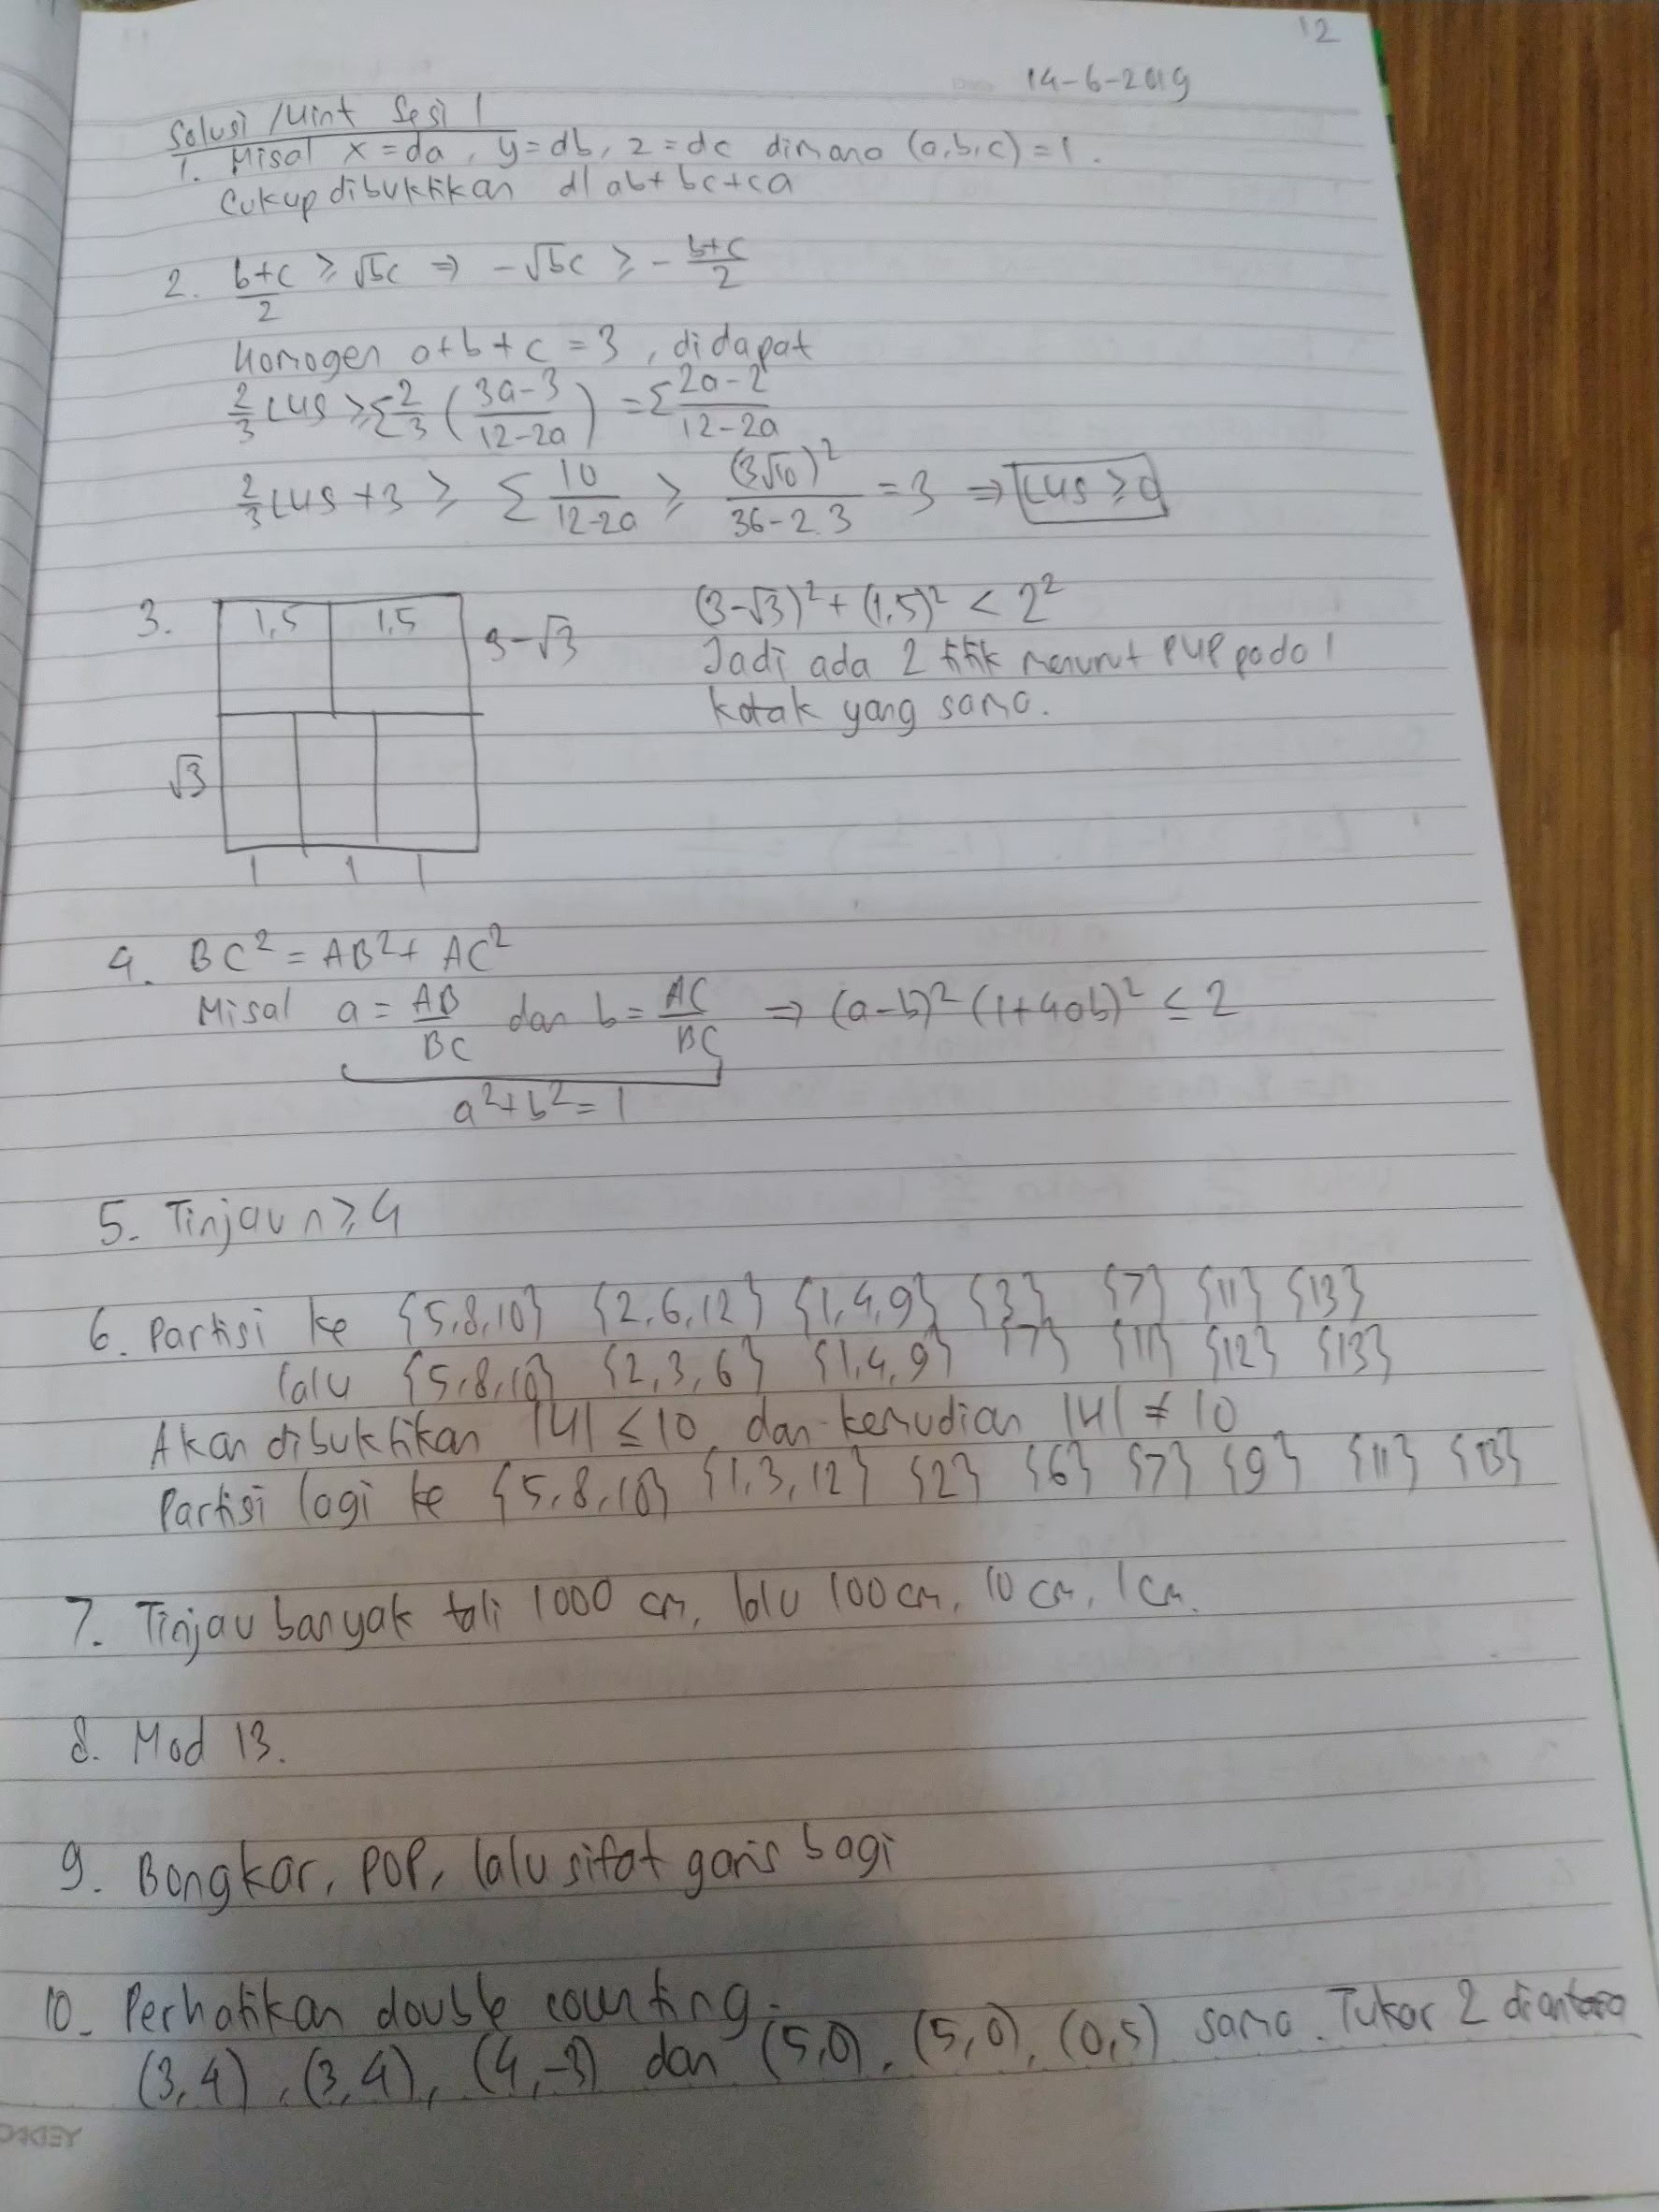 12
14-6-2019
Solusi /Hint Sesi 1
1. Misal x = da, y = db, z = dc dimana (a,b,c) = 1.
Cukup dibuktikan d|ab+bc+ca
2. (b+c)/2 ≥ √bc ⇒ -√bc ≥ - (b+c)/2
Homogen a+b+c = 3, didapat
2/3 LHS ≥ Σ 2/3 ((3a-3)/(12-2a)) = Σ (2a-2)/(12-2a)
2/3 LHS + 3 ≥ Σ 10/(12-2a) ≥ (3√10)²/(36-2.3) = 3 ⇒ LHS ≥ 0
3. 1,5 1,5 3-√3 (3-√3)² + (1,5)² < 2²
Jadi ada 2 titik menurut PHP pada 1
kotak yang sama.
√3
1 1 1
4. BC² = AB² + AC²
Misal a = AB/BC dan b = AC/BC ⇒ (a-b)² (1+4ab)² ≤ 2
a²+b² = 1
5. Tinjau n ≥ 4
6. Partisi ke {5,8,10} {2,6,12} {1,4,9} {3} {7} {11} {13}
lalu {5,8,10} {2,3,6} {1,4,9} {7} {11} {12} {13}
Akan dibuktikan |H| ≤ 10 dan kemudian |H| ≠ 10
Partisi lagi ke {5,8,10} {1,3,12} {2} {6} {7} {9} {11} {13}
7. Tinjau banyak tali 1000 cm, lalu 100 cm, 10 cm, 1 cm.
8. Mod 13.
9. Bongkar, POP, lalu sifat garis bagi
10. Perhatikan double counting.
(3,4), (3,4), (4,-3) dan (5,0), (5,0), (0,5) sama. Tukar 2 diantara